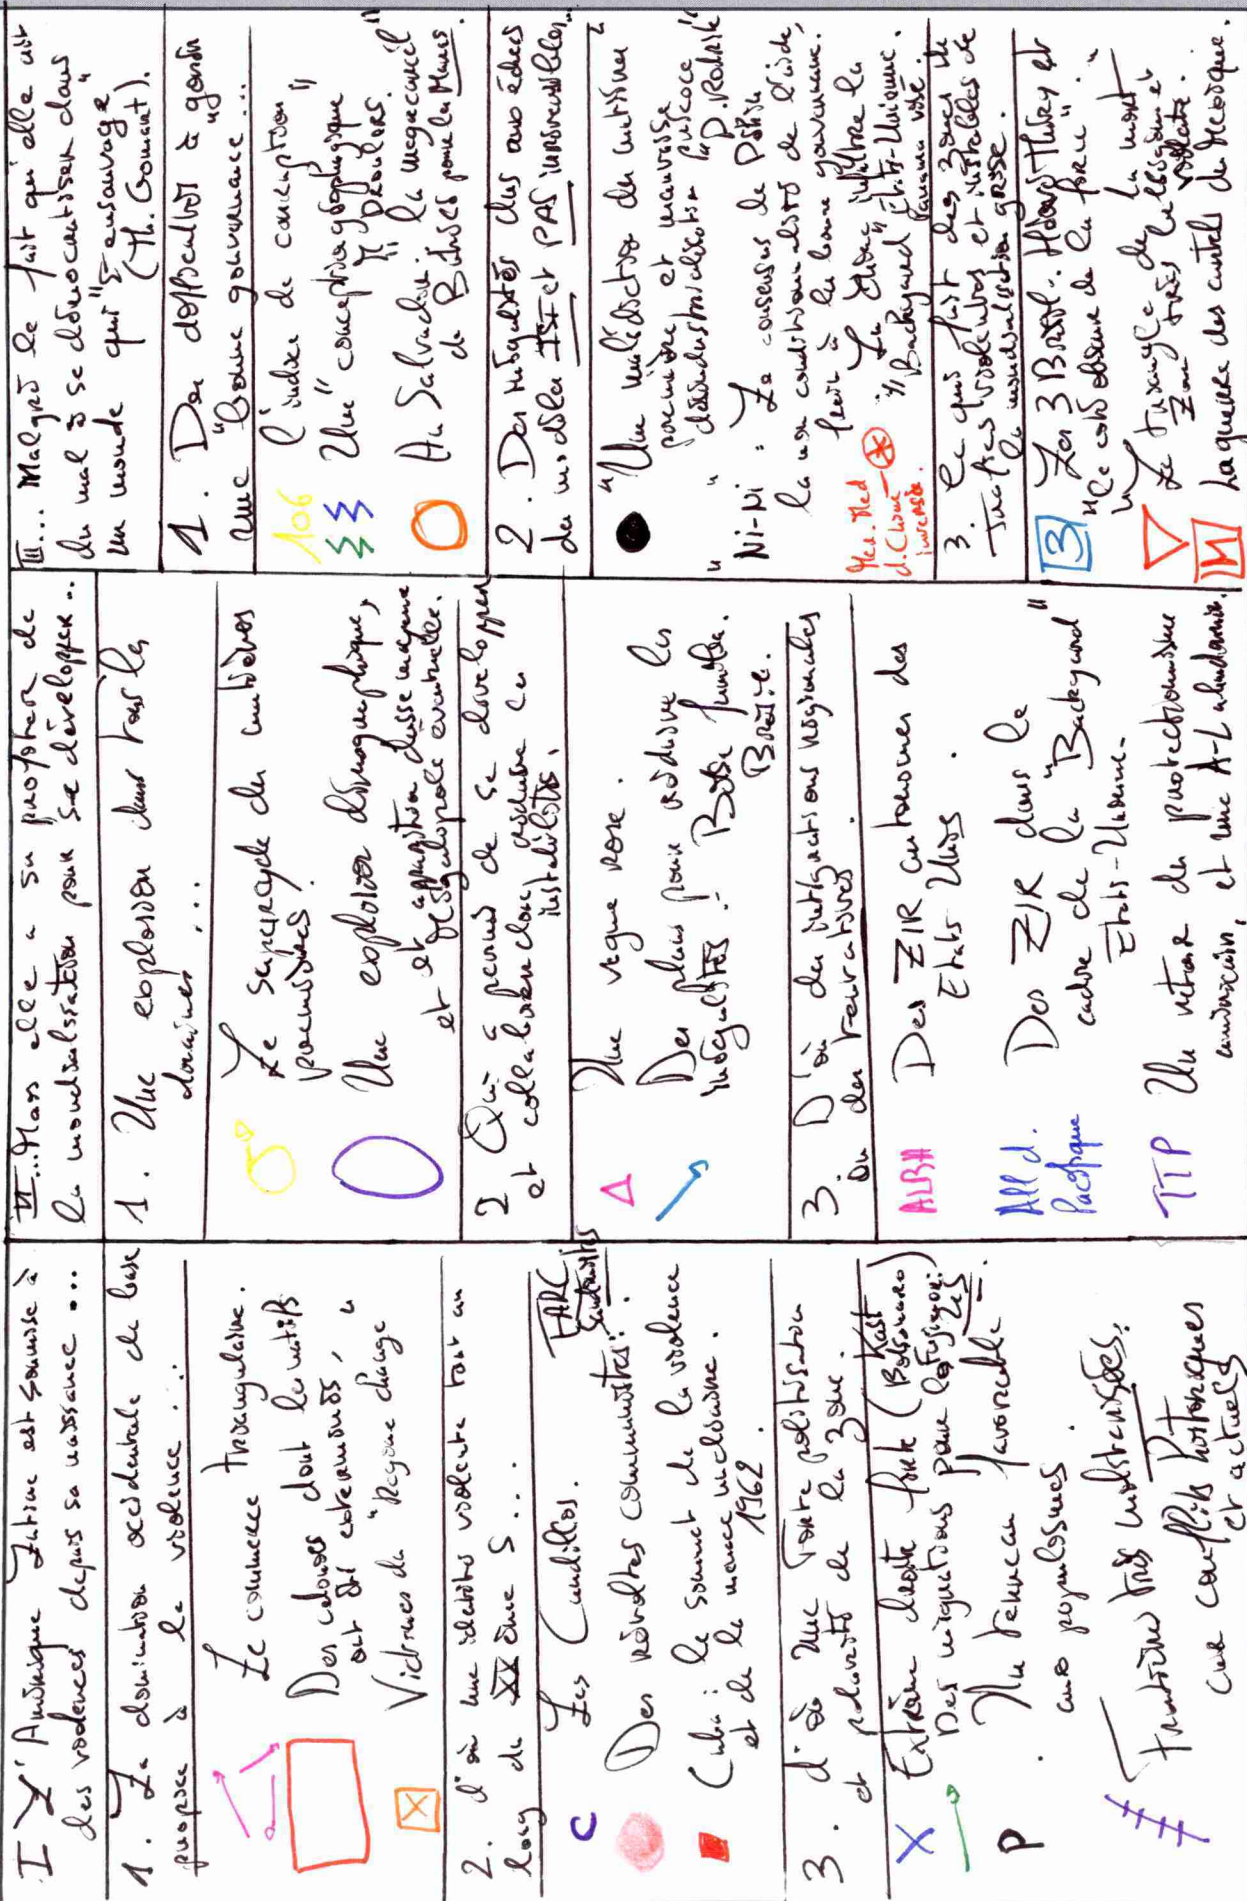 I L'Amérique Latine est soumise à
des violences depuis sa naissance ...
1. La domination occidentale de base
propice à la violence ...
Le commerce triangulaire.
Des colonies dont les natifs
ont été exterminés,
X
Victimes du "Regime change"
2. d'où une identité violente tout au
long du XXème S ...
C
Les Caudillos.
Des révoltes communistes :
FARC
Sandinistes
Cuba : le sommet de la violence
et de la menace nucléaire.
1962
3. d'où une forte politisation
et polarité de la zone.
X
Extrême droite forte (Bolsonaro)
Kast
Des migrations pour
P
Un terreau favorable
aux populismes.
Frontières très militarisées,
conflits historiques
et actuels
II...Mais elle a su profiter de
la mondialisation pour se développer ...
1. Une explosion dans tous les
domaines ...
Le supercycle des matières
premières.
Une explosion démographique,
et apparition classe moyenne
et mégalopole éventuelle.
2 Qui a permis de se développer
et
instabilités.
Une vague rose.
Des plans pour réduire les
inégalités : Bolsa familia.
Brésil.
3. D'où des intégrations régionales
ou des tentatives
ALBA
Des ZIR autonomes des
Etats-Unis.
All d.
Pacifique
Des ZIR dans le
cadre de la "Backyard"
Etats-Unienne.
TTP
Un retour du protectionnisme
américain, et une A-L
III... Malgré le fait qu'elle ait
du mal à se démocratiser dans
un monde qui "s'ensauvage"
(Th. Gomart).
1. Des difficultés à garder
une "bonne gouvernance" ...
106
l'indice de corruption
Une "conception géophagique"
M DROULERS.
Au Salvador : la megaprison
de Bukele pour les Maras
2. Des inégalités dues aux échecs
des modèles ISI et PAS insoutenables...
"Une malédiction des matières
premières" et mauvaise
"désindustrialisation précoce"
D. Rodrik
Ni-Ni : Le consensus de Pékin
la non conditionnalité de l'aide,
frein à la bonne gouvernance.
d. Chine
La Chine infiltre la
"Backyard" Etats-Unienne.
Panama visé.
3. Ce qui fait des zones de
trafics violentes et instables de
la mondialisation grise.
3
Les 3 Brésil. Hervé Théry et
"le côté obscur de la force"
Le triangle de la mort
Zone très belligène et
violente.
M
La guerre des cartels du Mexique.